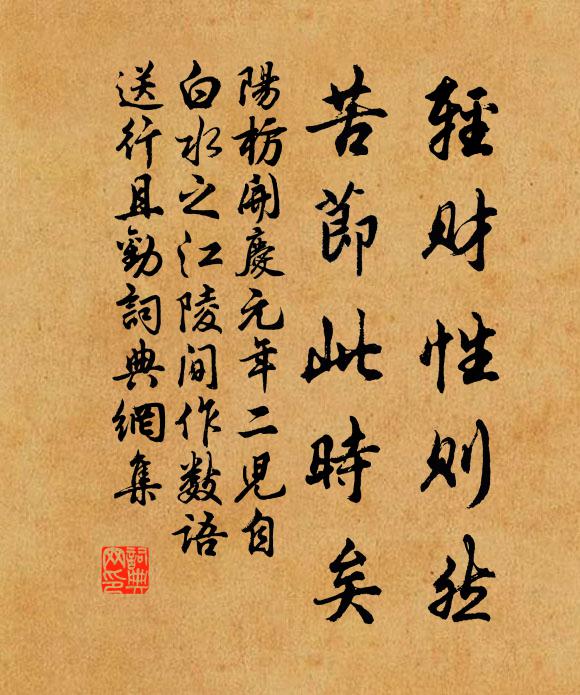 輕财性则然
苦節此時矣
陽枋開慶元年二児自
白水之江陵间作数语
送行且勸詞典網集
詞典网印